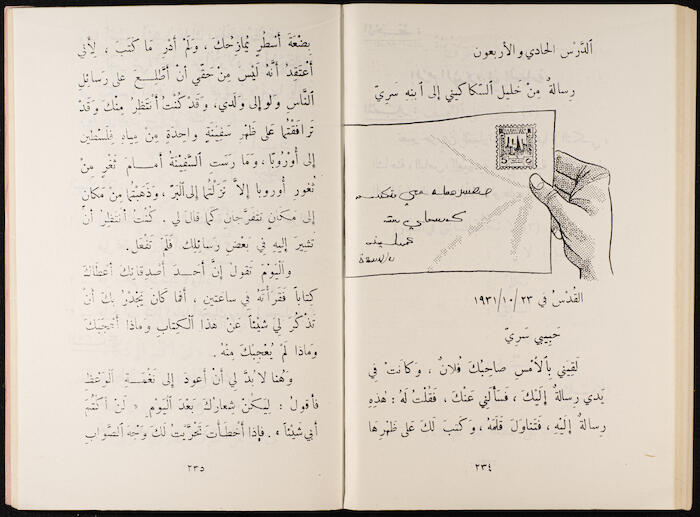 الدَّرْس الحادي والأربعون
رسالةٌ مِنْ خليل السَّكاكيني إلى ٱبنِهِ سَرِيّ
5
القُدْسُ في ٢٣/ ١٠/ ١٩٣١
حَبيبي سَرِيّ
لَقِيَني بِالأَمْسِ صاحِبُكَ فُلانٌ ، وَكانَتْ في
يَدي رِسالةٌ إلَيْكَ ، فَسَأَلَني عَنْكَ ، فَقُلْتُ لَهُ : هٰذِهِ
رِسالةٌ إلَيْهِ ، فَتَناوَلَ قَلَمَهُ ، وَكَتَبَ لَكَ عَلى ظَهْرِها
٢٣٤
بِضْعَةَ أَسْطُرٍ يُمازِحُكَ ، وَلَمْ أَدْرِ ما كَتَبَ ، لِأَنّي
أَعْتَقِدُ أَنَّهُ لَيْسَ مِنْ حَقّي أَنْ أَطَّلِعَ على رَسائِلِ
النّاسِ وَلَو إلى وَلَدي، وَقَد كُنْتُ أَنتَظِرُ مِنْكَ وَقَدْ
تَرافَقْتُما عَلى ظَهْرِ سَفينَةٍ واحِدَةٍ مِنْ مِياهِ فِلَسْطين
إلى أُوْرُوبّا ، وَما رَسَتِ السَّفينَةُ أَمامَ ثَغْرٍ مِنْ
ثُغُورِ أُوروبا إلاّ نَزَلْتُما إلى ٱلبَرّ ، وَذَهَبْتُما مِنْ مَكانٍ
إلى مَكانٍ تَتَفَرَّجان كَما قالَ لي . كُنْتُ أَنتَظِرُ أَنْ
تُشيرَ إليهِ في بَعْضِ رَسائِلِك فَلَمْ تَفْعَل .
وَٱليَوْمَ تَقولُ إنَّ أَحَدَ أَصْدِقائِكَ أَعْطاكَ
كِتاباً فَقَرَأْتَهُ في ساعتين، أَفَما كانَ يَجْدُرُ بِكَ أَنْ
تَذْكُرَ لي شَيْئاً عَنْ هذا ٱلكِتابِ وَماذا أَعْجَبَكَ
وَماذا لَمْ يُعْجِبْكَ مِنْهُ .
وَهُنا لا بُدَّ لي أَنْ أَعودَ إلى نَغْمَةِ ٱلوَعْظِ
فأقولُ : لِيَكُنْ شِعارُكَ بَعْدَ اليَوْمِ « لَنْ أَكْتُمَ
أبي شَيْئاً » . فإذا أَخْطَأْتَ تَحَرَّيْتُ لَكَ وَجْهَ ٱلصَّوابِ
٢٣٥